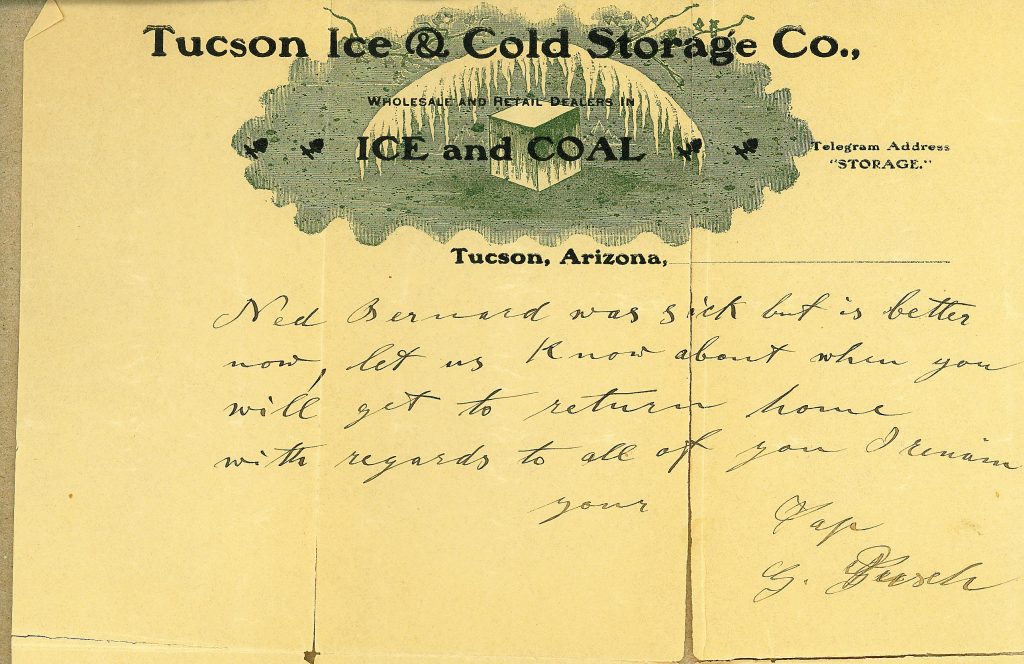 Tucson Ice & Cold Storage Co.,
Wholesale and Retail Dealers In
ICE and COAL
Telegram Address
"STORAGE."
Tucson, Arizona,
Ned Bernard was sick but is better
now, let us Know about when you
will get to return home
with regards to all of you I remain
your
Pap
G. Pusch